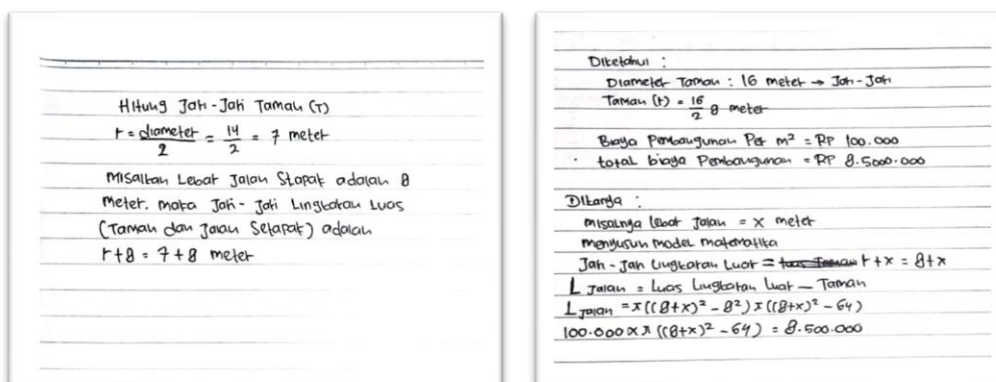 Hitung Jari-Jari Taman (r)
r = diameter / 2 = 14 / 2 = 7 meter
misalkan Lebar Jalan Stapak adalah 8
meter. maka Jari-Jari Lingkaran Luas
(Taman dan Jalan Setapak) adalah
r+8 = 7+8 meter
Diketahui :
Diameter Taman : 16 meter → Jari-Jari
Taman (r) = 16 / 2 8 meter
Biaya Pembangunan Per m² = RP 100.000
total biaya Pembangunan = RP 8.5000.000
Ditanya :
misalnya lebar Jalan = x meter
menyusun model matematika
Jari-Jari Lingkaran Luar = r+x = 8+x
L Jalan = Luas Lingkaran Luar – Taman
L Jalan = π((8+x)² - 8²) π((8+x)² - 64)
100.000 x π ((8+x)² - 64) = 8.500.000